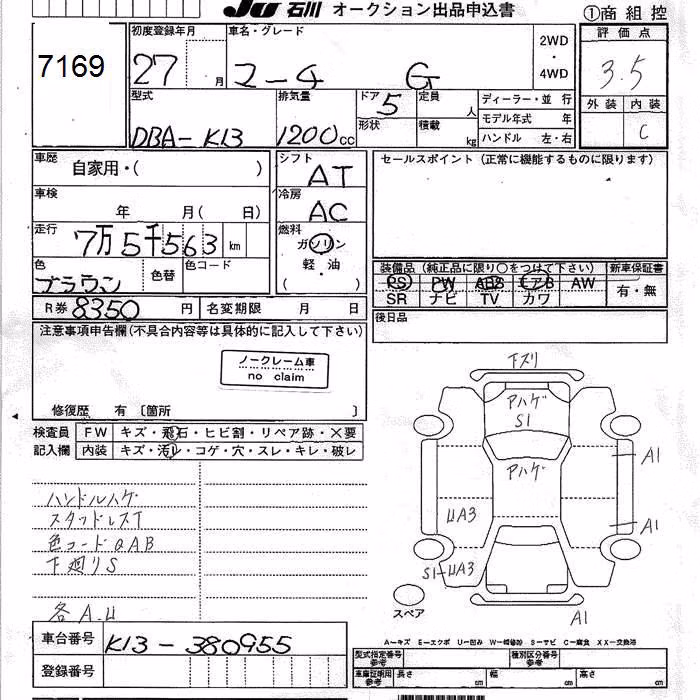 JU 石川 オークション出品申込書 ①商組控
7169
初度登録年月 27 月
車名・グレード マーチ G
2WD・4WD
評価点 3.5
外装 内装 C
型式 DBA-K13
排気量 1200cc
ドア 5 形状
定員 人
積載 kg
ディーラー・並行
モデル年式 年
ハンドル 左・右
車歴 自家用・( )
シフト AT
セールスポイント(正常に機能するものに限ります)
車検 年 月( 日)
冷房 AC
走行 7万5千563 km
燃料 ガソリン・軽・油 ( )
色 ブラウン 色替 色コード
装備品(純正品に限り○をつけて下さい) 新車保証書
PS PW ABS エアB AW 有・無
SR ナビ TV カワ
R券 8350 円 名変期限 月 日
後日品
注意事項申告欄(不具合内容等は具体的に記入して下さい)
ノークレーム車
no claim
修復歴 有〔箇所 〕
検査員 FW キズ・飛石・ヒビ割・リペア跡・X要
記入欄 内装 キズ・汚レ・コゲ・穴・スレ・キレ・破レ
下ズリ
アハゲ
S1
アハゲ
A1
UA3
A1
S1-UA3
A1
スペア
ハンドルハゲ
スタッドレスT
色コードQAB
下廻りS
各A.U
A-キズ E-エクボ U-凹み W-補修跡 S-サビ C-腐食 XX-交換済
車台番号 K13-380955
登録番号
型式指定番号 参考 種別区分番号 参考
車庫証明用 参考 長さ cm 幅 cm 高さ cm